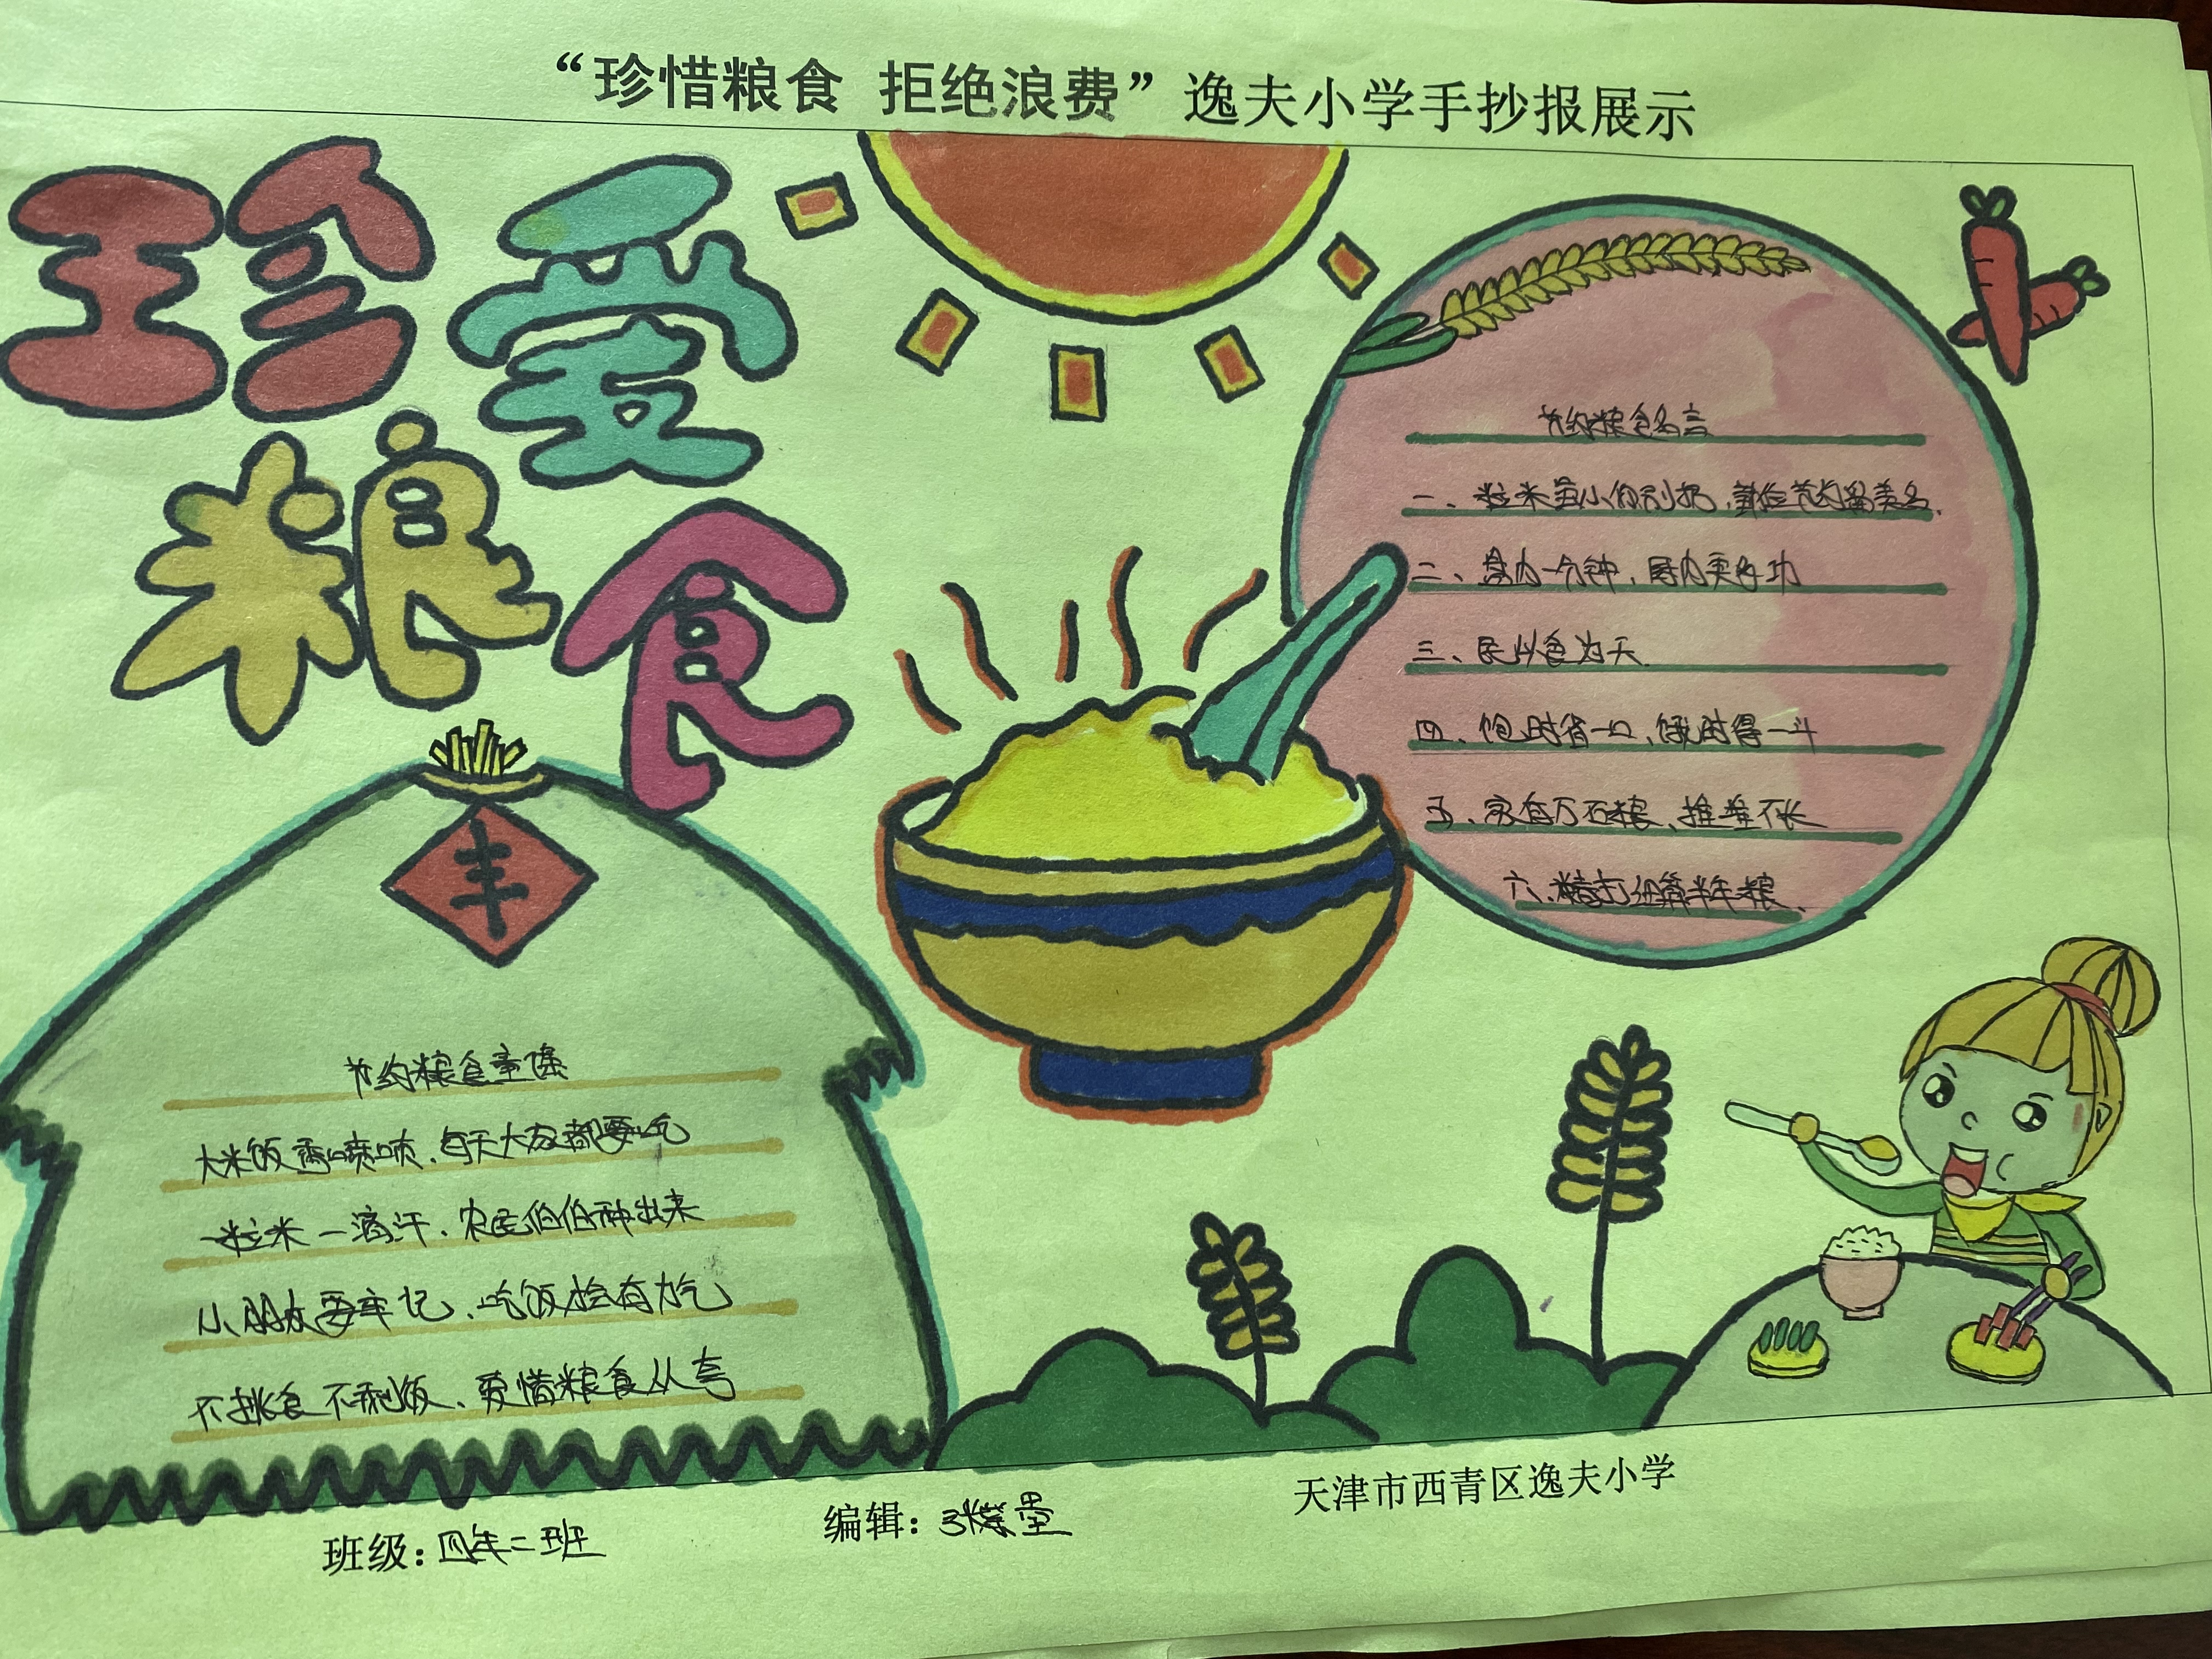 “珍惜粮食 拒绝浪费”逸夫小学手抄报展示
珍爱
粮食
丰
节约粮食名言
一、粒米虽小但别扔,勤俭节约留美名.
二、盘内一分钟,
三、民以食为天.
四、饱时省一口、饿时得一斗
五、家有万石粮、挥不长
六、精打细算半年粮、
节约粮食童谣
大米饭香喷喷、每天大家都要吃
一粒米一滴汗、农民伯伯种出来
小朋友要牢记、吃饭给有力气
不挑食不剩饭、爱惜粮食从夸
班级:四年二班
编辑:
天津市西青区逸夫小学